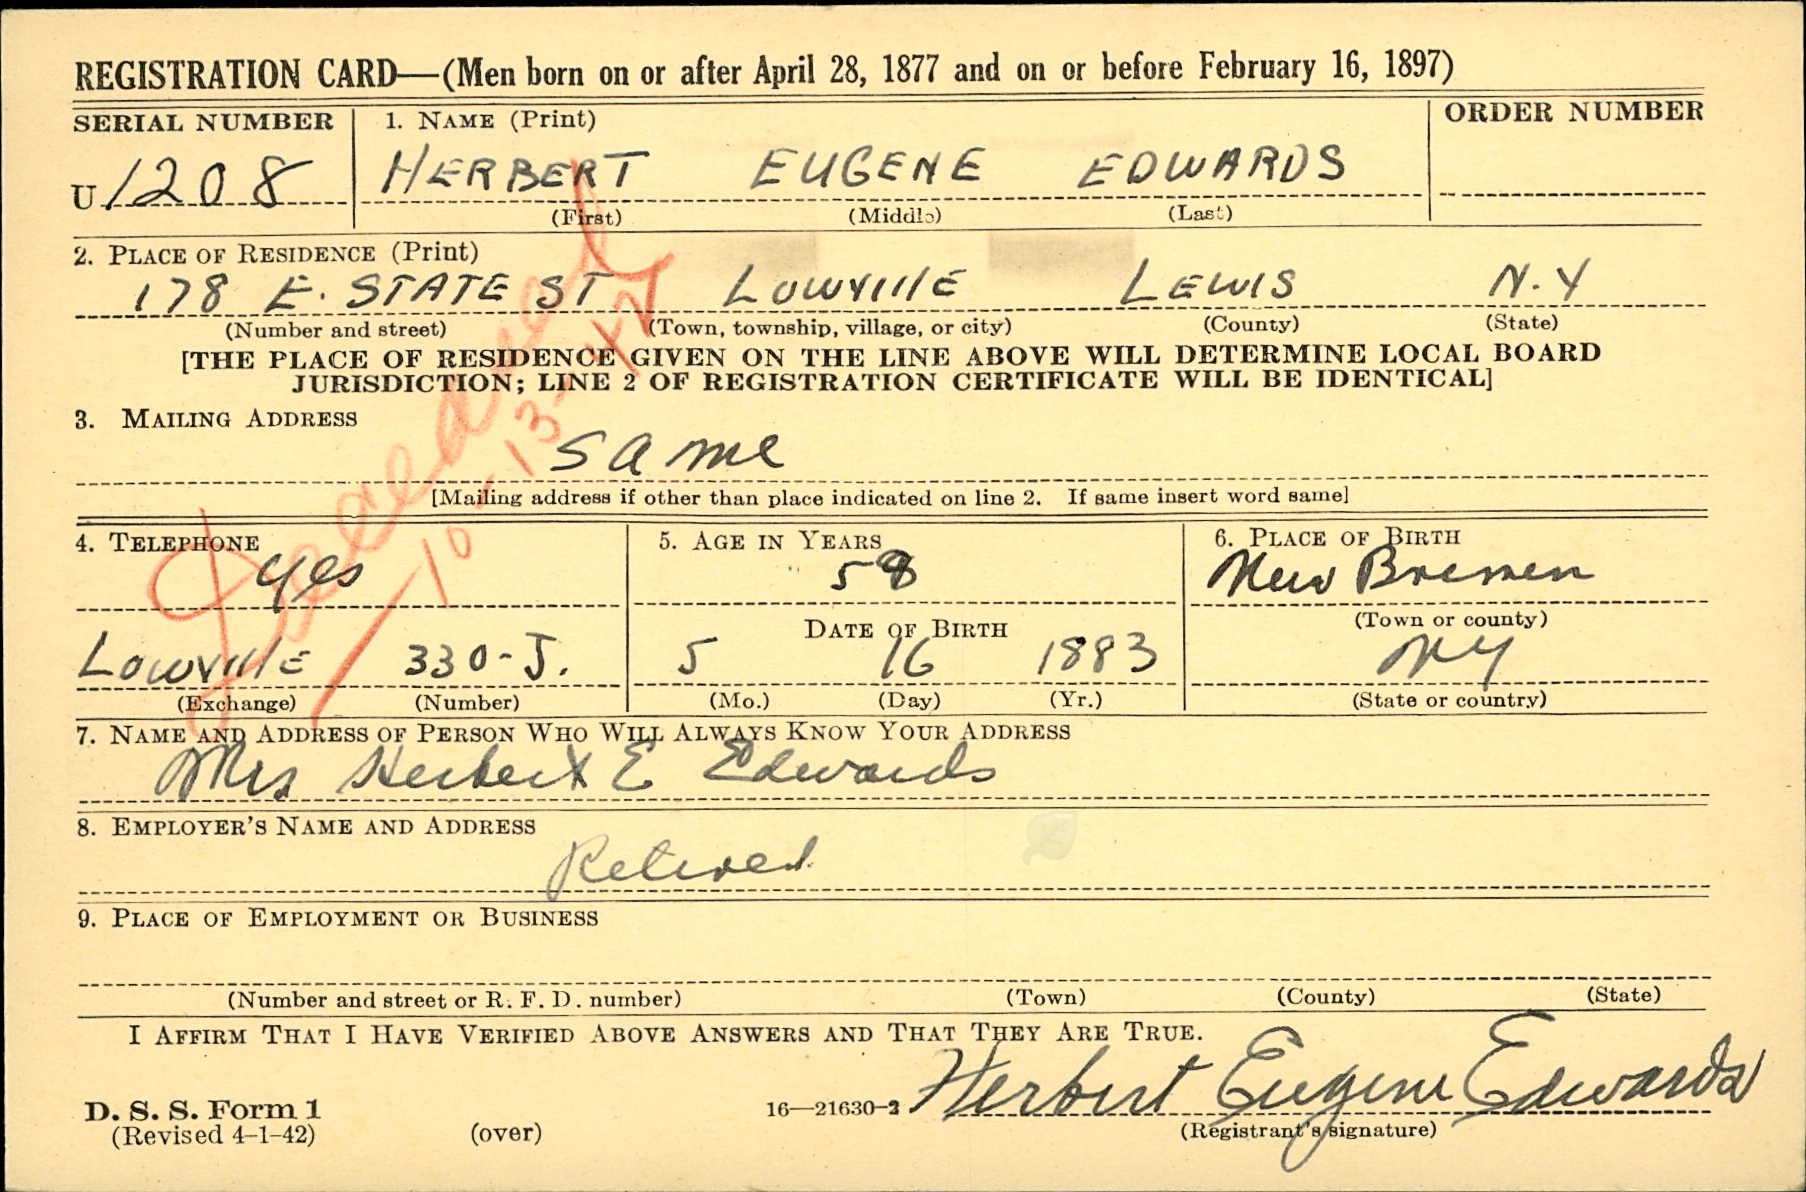 REGISTRATION CARD—(Men born on or after April 28, 1877 and on or before February 16, 1897)
SERIAL NUMBER
1. NAME (Print)
ORDER NUMBER
U 1208
HERBERT EUGENE EDWARDS
(First) (Middle) (Last)
2. PLACE OF RESIDENCE (Print)
178 E. STATE ST LOWVIllE LEWIS N.Y
(Number and street) (Town, township, village, or city) (County) (State)
[THE PLACE OF RESIDENCE GIVEN ON THE LINE ABOVE WILL DETERMINE LOCAL BOARD
JURISDICTION; LINE 2 OF REGISTRATION CERTIFICATE WILL BE IDENTICAL]
3. MAILING ADDRESS
same
[Mailing address if other than place indicated on line 2. If same insert word same]
Deceased
10-13-42
4. TELEPHONE
yes
LOWVIllE 330-J.
(Exchange) (Number)
5. AGE IN YEARS
58
DATE OF BIRTH
5 16 1883
(Mo.) (Day) (Yr.)
6. PLACE OF BIRTH
New Bremen
(Town or county)
NY
(State or country)
7. NAME AND ADDRESS OF PERSON WHO WILL ALWAYS KNOW YOUR ADDRESS
Mrs Herbert E Edwards
8. EMPLOYER'S NAME AND ADDRESS
Retired
9. PLACE OF EMPLOYMENT OR BUSINESS
(Number and street or R. F. D. number) (Town) (County) (State)
I AFFIRM THAT I HAVE VERIFIED ABOVE ANSWERS AND THAT THEY ARE TRUE.
Herbert Eugene Edwards
D. S. S. Form 1
(Revised 4-1-42)
(over)
16—21630-2
(Registrant's signature)